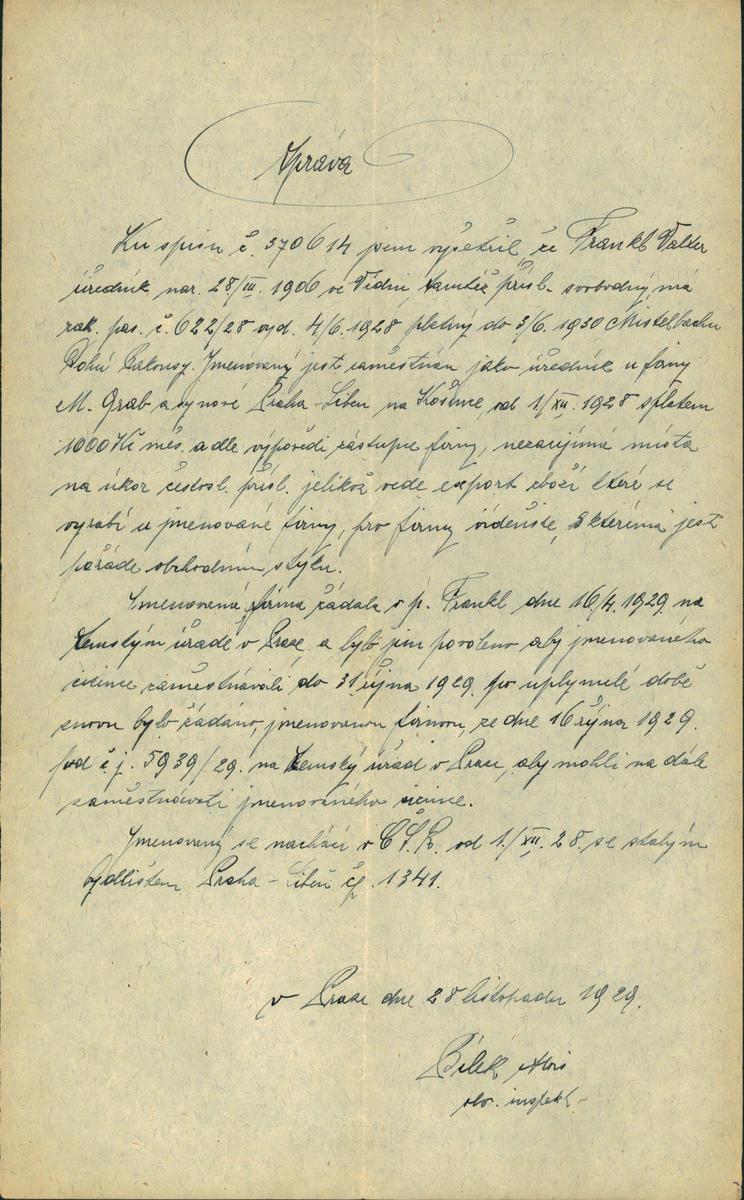 Zpráva
Ku spisu č. 370614 jsem vyšetřil, že Frankl Valter
úředník nar. 28/III. 1906 ve Vídni, tamtéž přísl. svobodný, má
rak. pas. č. 622/28 vyd. 4/6. 1928 platný do 3/6. 1930 Mistelbachu
Dolní Rakousy. Jmenovaný jest zaměstnán jako úředník u firmy
M. Grab a synové Praha-Libeň na Košince, od 1/XII. 1928 s platem
1000 Kč měs. a dle výpovědi zástupce firmy, nezaujímá místa
na úkor českosl. přísl. jelikož vede export zboží které se
vyrábí u jmenované firmy, pro firmy vídeňské, s kterými jest
pořáde obchodním styku.
Jmenovaná firma žádala o p. Frankl dne 16/4. 1929 na
Zemským úradě v Praze a bylo jim povoleno aby jmenovaného
cizince zaměstnávali do 31. října 1929. po uplynulé době
znovu bylo žádáno, jmenovanou firmou, ze dne 16 října 1929.
pod č.j. 5939/29. na Zemský úřad v Praze, aby mohli na dále
zaměstnávati jmenovaného cizince.
Jmenovaný se nachází v Č.S.R. od 1./XII. 28. se stalým
bydlištem Praha-Libeň čp. 1341.
v Praze dne 28 listopadu 1929.
Bílek Alois
obv. inspekt.